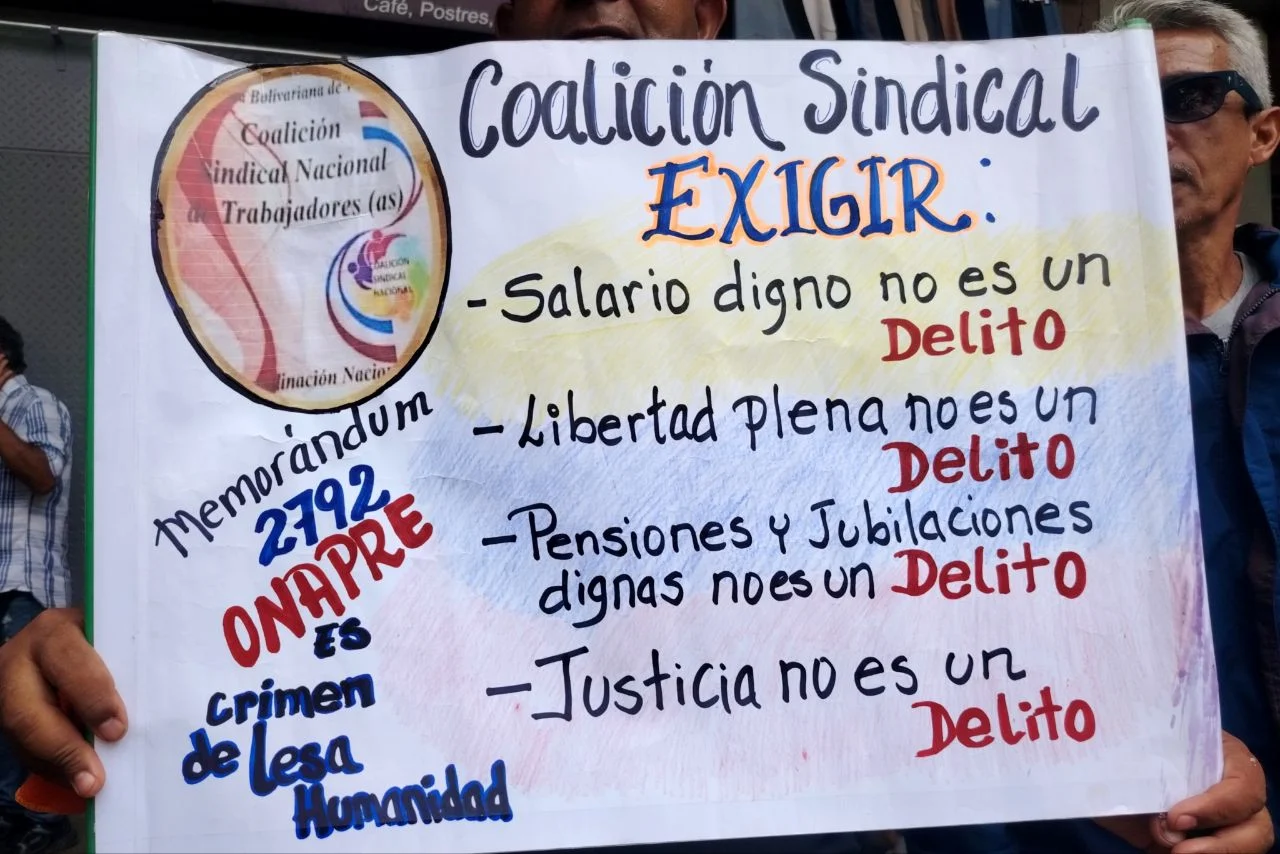 Café, Postres,
Bolivariana de
Coalición
Sindical Nacional
de Trabajadores (as)
COALICIÓN
SINDICAL
NACIONAL
Coalición Sindical
EXIGIR:
-Salario digno no es un
Delito
-Libertad plena no es un
Delito
-Pensiones y Jubilaciones
dignas no es un Delito
-Justicia no es un
Delito
Memorándum
2792
ONAPRE
ES
crimen
de lesa
Humanidad